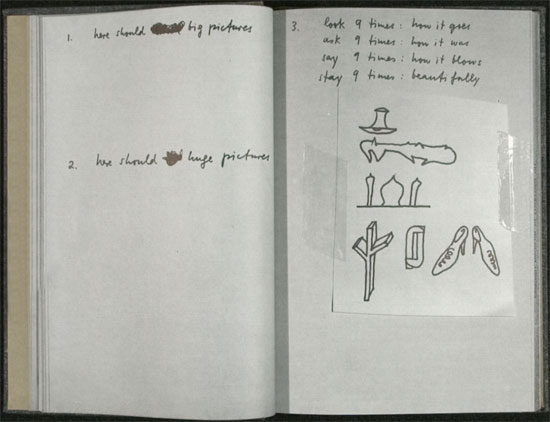 1. here should big pictures
2. here should huge pictures
3. look 9 times: how it goes
ask 9 times: how it was
say 9 times: how it blows
stay 9 times: beautifully